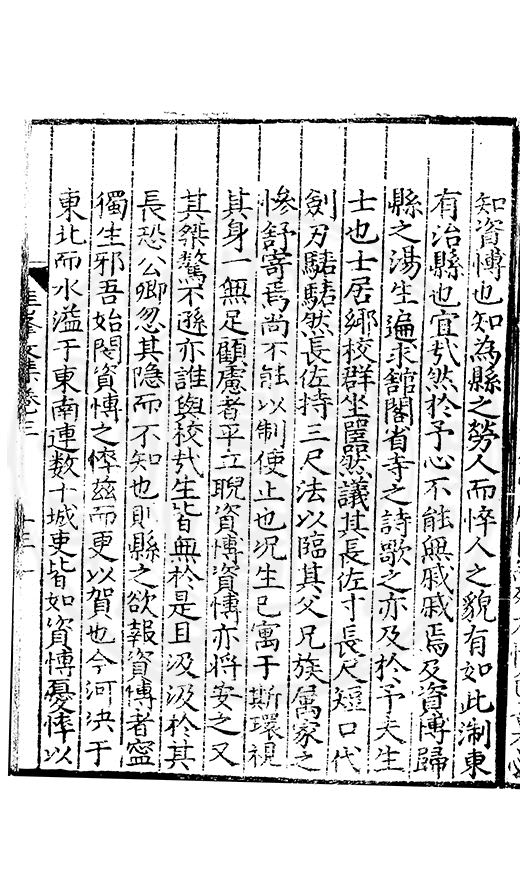 知資博也知為縣之勞人而悴人之貌有如此淛東
有治縣也宜哉然於予心不能無戚戚焉及資博歸
縣之湯生遍求舘閣省寺之詩歌之亦及於予夫生
士也士居鄉校群坐嚚然議其長佐寸長尺短口代
劍刃騞騞然長佐持三尺法以臨其父兄族属家之
慘舒寄焉尚不能以制使止也况生已寓于斯環視
其身一無足顧慮者平立睨資博資博亦將安之又
其桀驁不遜亦誰與校哉生皆無於是且汲汲於其
長恐公卿忽其隐而不知也則縣之欲報資博者寧
獨生邪吾始閔資博之悴兹而更以賀也今河决于
東北而水溢于東南連数十城吏皆如資博憂悴以
集卷三